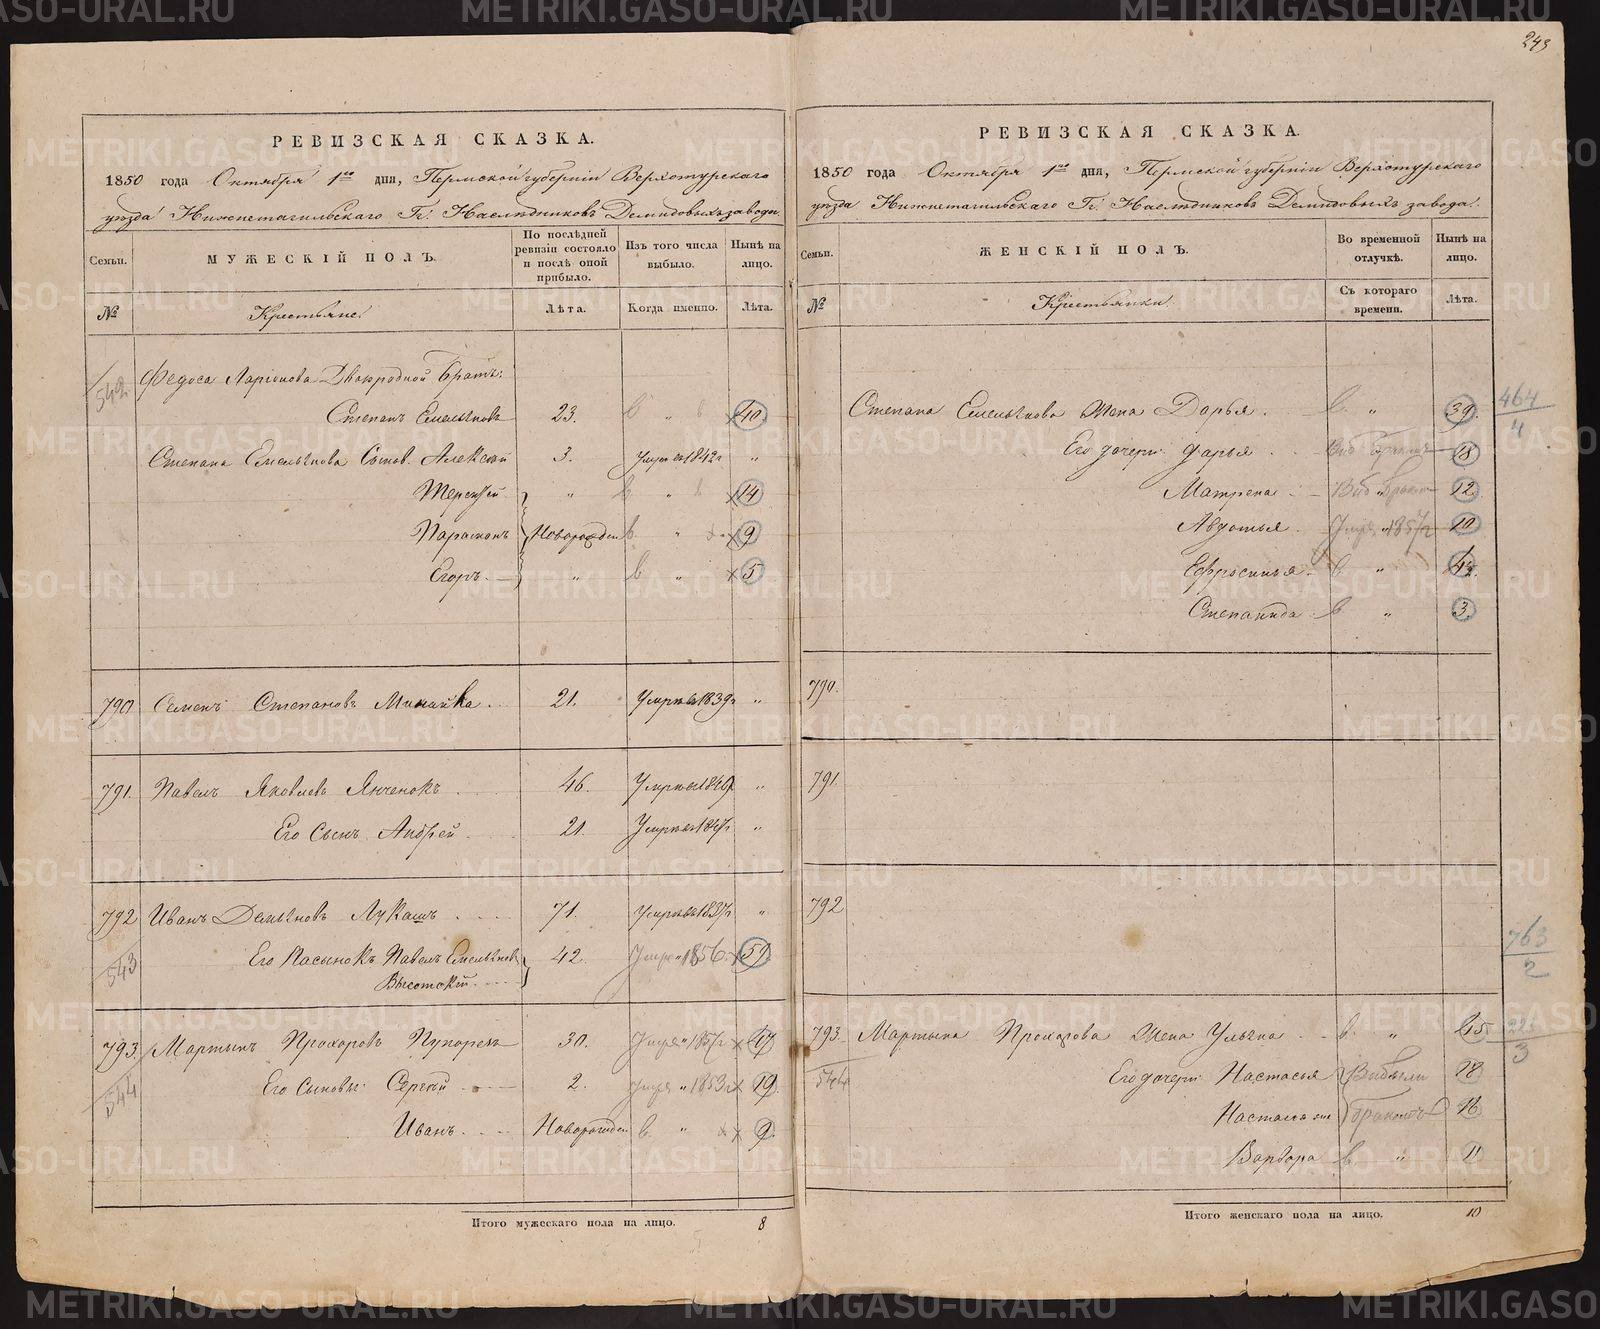 243
РЕВИЗСКАЯ СКАЗКА.
1850 года Октября 1го дня, Пермской губерніи Верхотурскаго
уѣзда Нижнетагильскаго Гг. Наслѣдниковъ Демидовыхъ завода.
Семьи.
МУЖЕСКІЙ ПОЛЪ.
По послѣдней ревизіи состояло и послѣ оной прибыло.
Изъ того числа выбыло.
Нынѣ на лицо.
№
Крестьяне
Лѣта.
Когда именно.
Лѣта.
542
Федоса Ларіонова Двоюродной Братъ:
Степанъ Емельяновъ 23. 40
Степана Емельянова Сынов. Алексѣй 3. 1842 "
Терентей " 14
Парамонъ Новорожден 9
Егоръ " 5
790 Семенъ Степановъ Минайка 21. Умре въ 1839 "
791. Павелъ Яковлевъ Янченокъ 46. Умре въ "
Его Сынъ Андрей 21 Умре въ "
792 Иванъ Демьяновъ Лукашъ 71. Умре въ 1837 "
543
Его Пасынокъ Павелъ Емельяновъ 42. 1856 59
Высотскій
793. Мартынъ Прохоровъ 30. 1857 47
544
Его Сыновья Сергѣй 2. 1853 19
Иванъ Новорожден 9.
Итого мужескаго пола на лицо. 8
РЕВИЗСКАЯ СКАЗКА.
1850 года Октября 1го дня, Пермской губерніи Верхотурскаго
уѣзда Нижнетагильскаго Гг. Наслѣдниковъ Демидовыхъ завода.
Семьи.
ЖЕНСКІЙ ПОЛЪ.
Во временной отлучкѣ.
Нынѣ на лицо.
№
Крестьянки
Съ котораго времени.
Лѣта.
Степана Емельянова Жена Дарья " 39.
464
4
Его дочери: Дарья 18
Матрена 12
Авдотья 1857 10
Ефросинья "
Степанида " 3.
790.
791.
792
763
2
793. Мартына Прохорова Жена Ульяна " 45
3
544
Его дочери: Настасья Выбыли 18
Настасья бракомъ 16
Варвора " 11
Итого женскаго пола на лицо. 10
METRIKI.GASO-URAL.RU